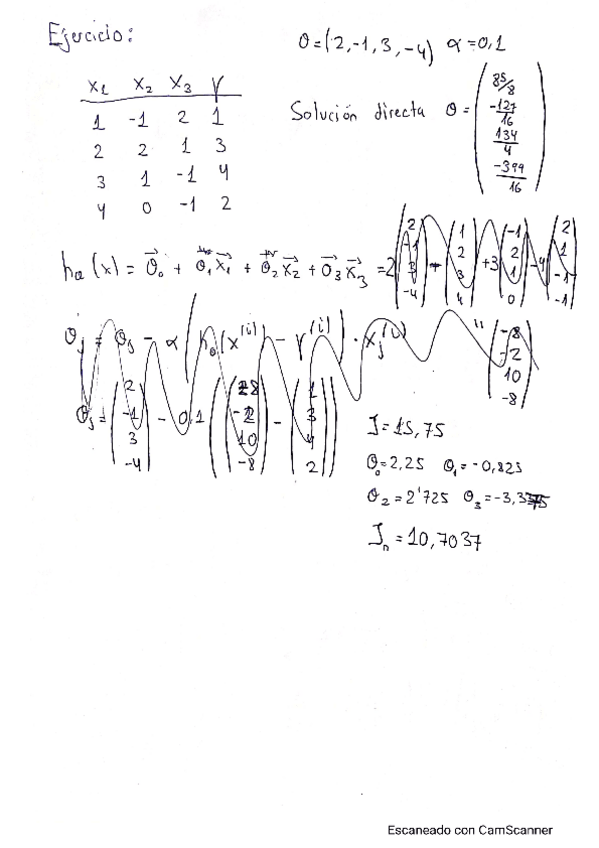 Ejercicio:
θ=(2,-1,3,-4) α=0,1
x1 x2 x3 Y
1 -1 2 1
2 2 1 3
3 1 -1 4
4 0 -1 2
Solución directa θ= (85/8 -127/16 134/4 -399/16)
hθ(x) = θ0 + θ1 x1 + θ2 x2 + θ3 x3 = 2 (2 -1 3 -4) + (1 2 3 4) +3 (-1 2 1 0) -4 (2 1 -1 -1)
θj = θj - α (hθ(x(i)) - Y(i)) · xj(i) " (-8 -2 10 -8)
θj = (2 -1 3 -4) - 0.1 ((-2 10 -8) - (1 3 4 2))
J=15,75
θ0=2,25 θ1=-0,825
θ2=2'725 θ3=-3,3
Jn=10,7037
Escaneado con CamScanner